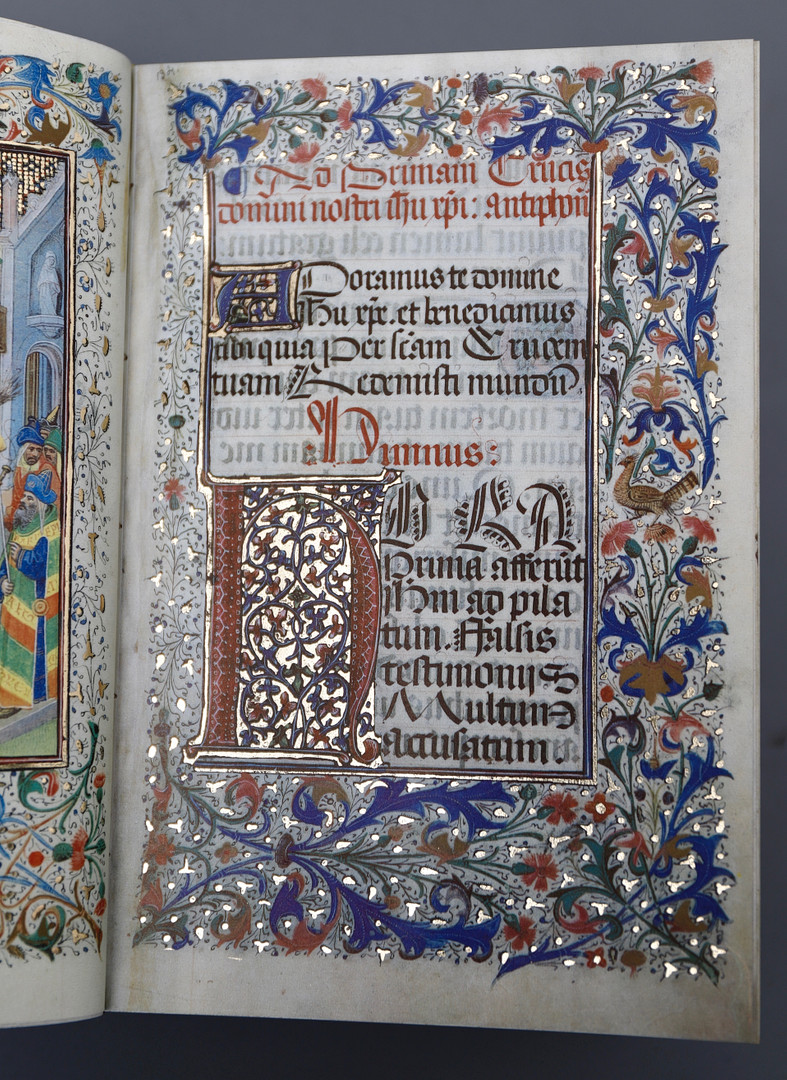 Ad Primam Crucis
domini nostri ihu xpi: antiphona
Adoramus te domine
ihu xpe. et benedicimus
tibi quia per scam Crucem
tuam Redemisti mundū.
Himnus:
HORA
Prima afferūt
ihm ad pila
tum. Falsis
testimonijs
Multum
accusatum.